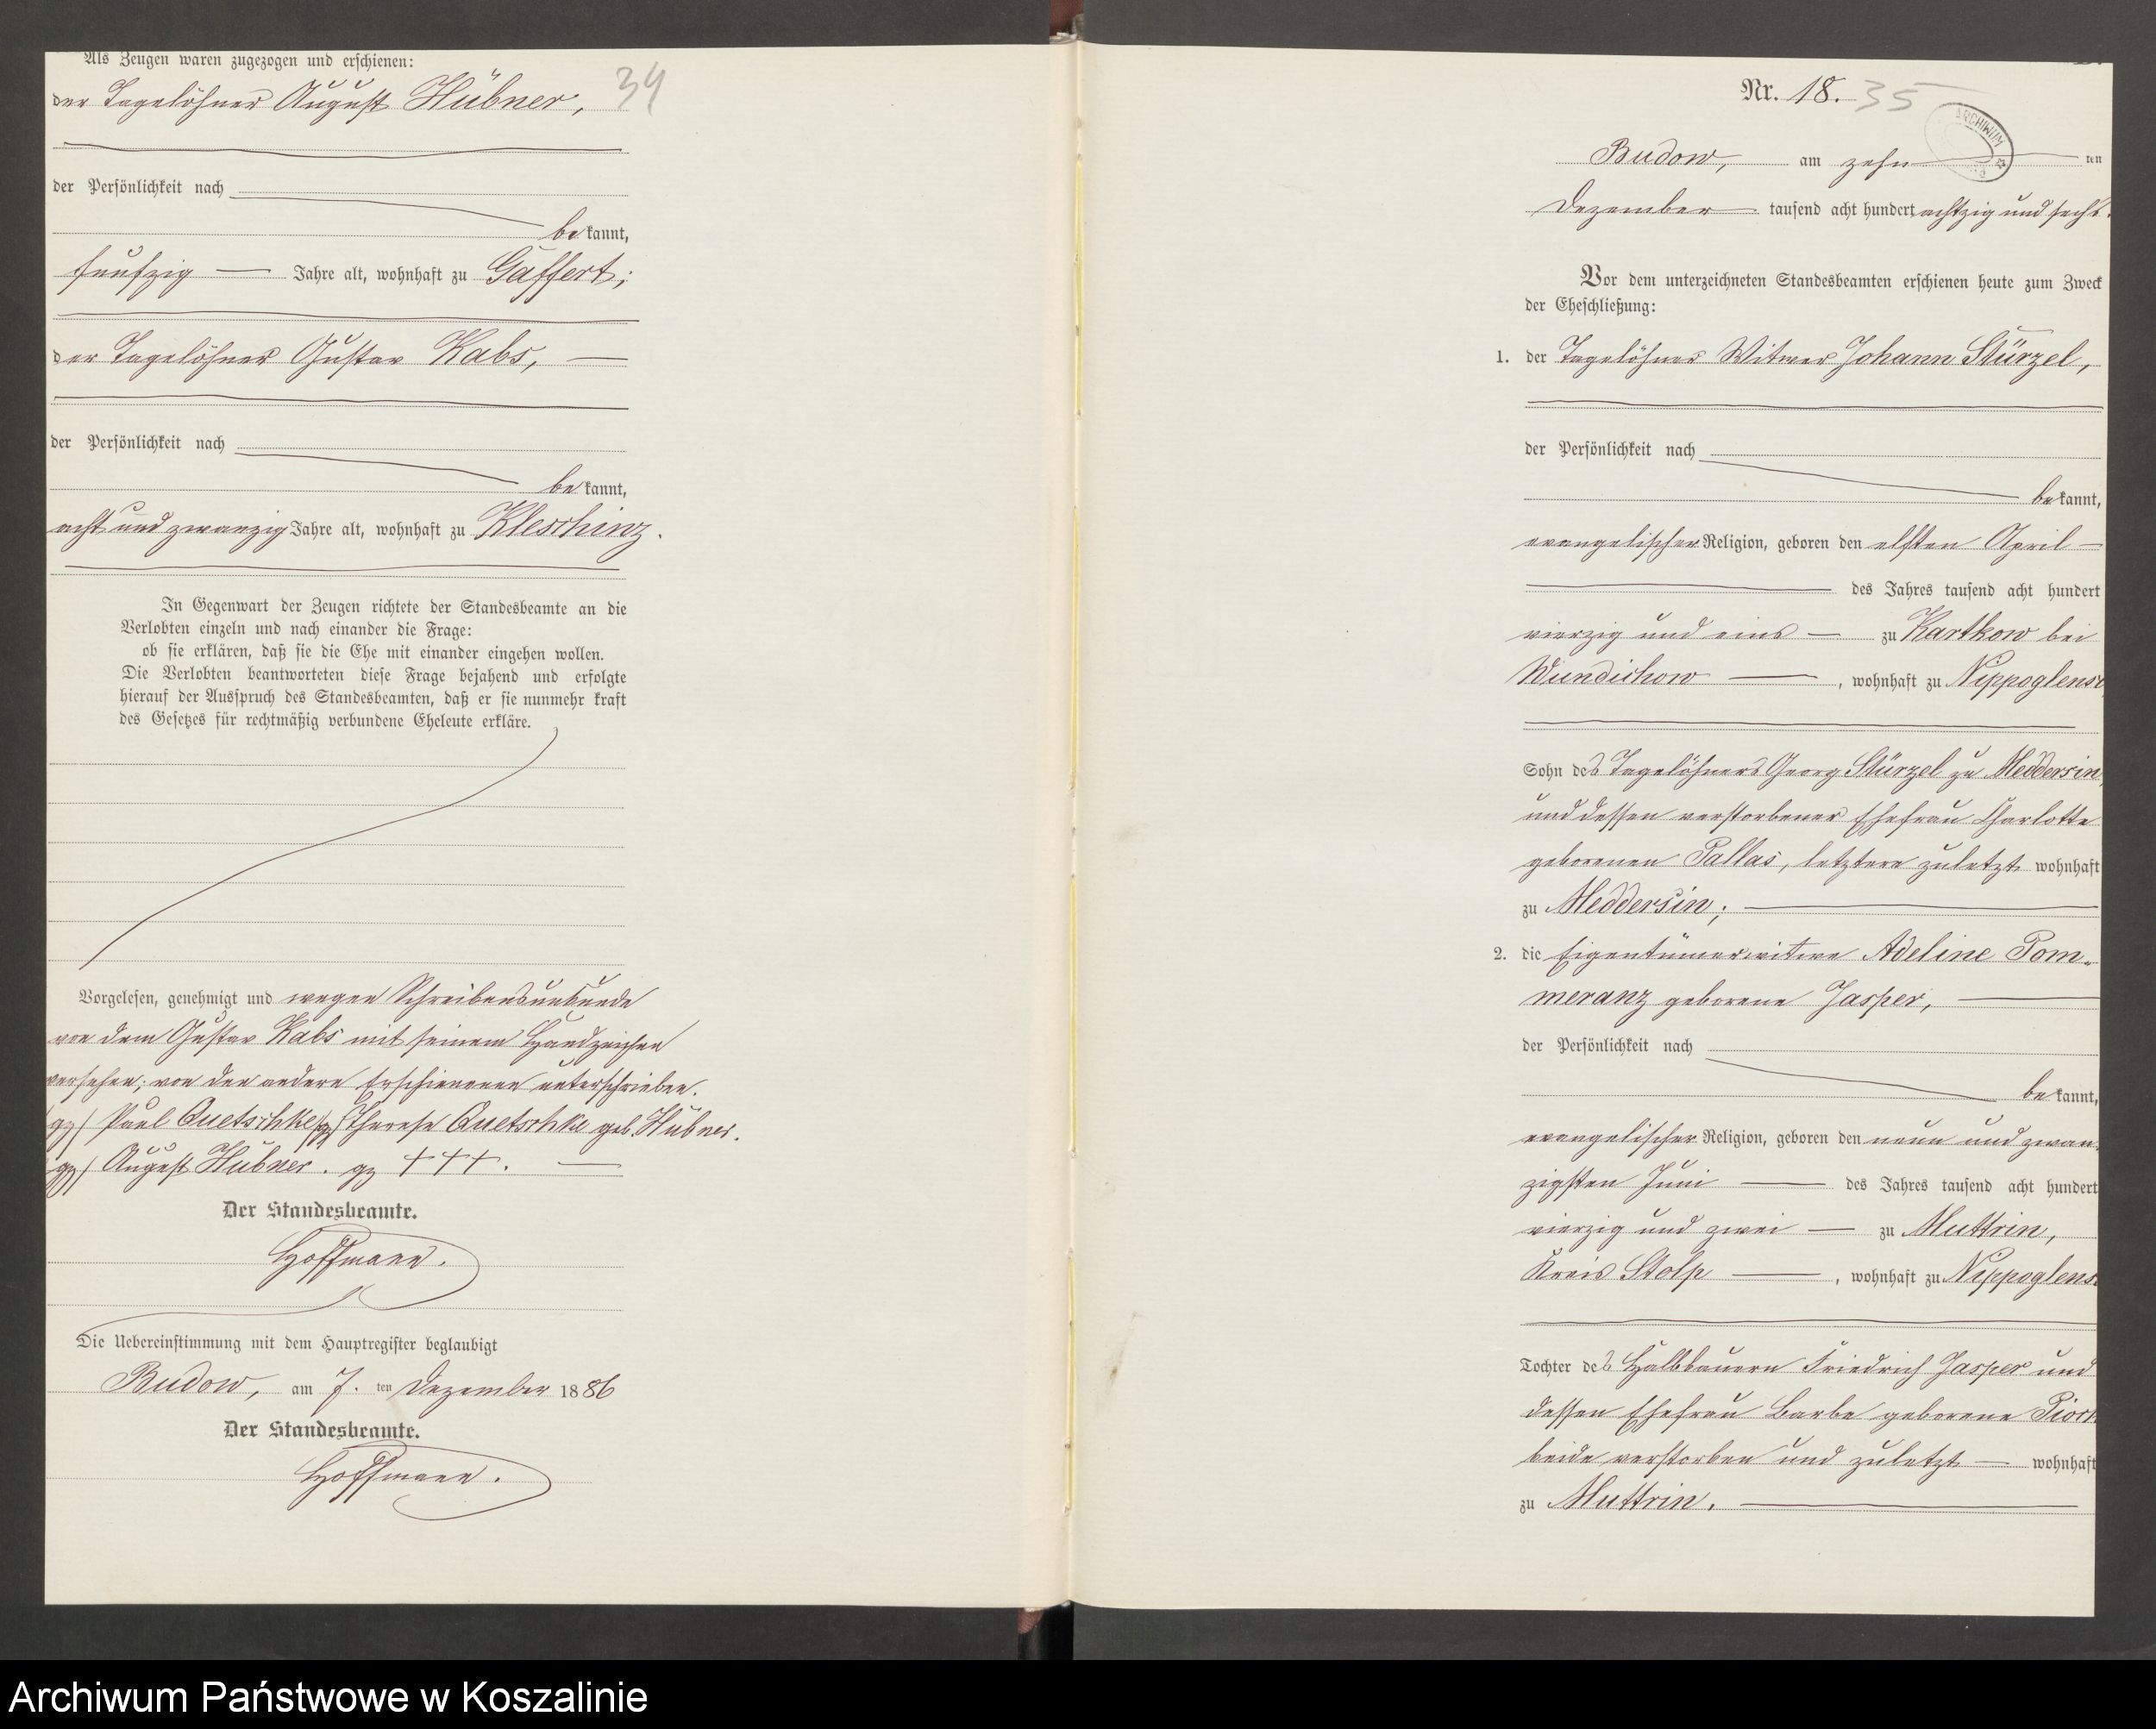 Als Zeugen waren zugezogen und erschienen:
der Tagelöhner August Hübner,
34
der Persönlichkeit nach
be kannt,
funfzig Jahre alt, wohnhaft zu Gaffert;
der Tagelöhner Gustav Kabs,
der Persönlichkeit nach
be kannt,
acht und zwanzig Jahre alt, wohnhaft zu Kleschinz.
In Gegenwart der Zeugen richtete der Standesbeamte an die
Verlobten einzeln und nach einander die Frage:
ob sie erklären, daß sie die Ehe mit einander eingehen wollen.
Die Verlobten beantworteten diese Frage bejahend und erfolgte
hierauf der Ausspruch des Standesbeamten, daß er sie nunmehr kraft
des Gesetzes für rechtmäßig verbundene Eheleute erkläre.
Vorgelesen, genehmigt und wegen Schreibensunkunde
von dem Gustav Kabs mit seinem Handzeichen
versehen; von den andern Erschienenen unterschrieben.
gz) Paul Quetschke gz) Therese Quetschke geb. Hübner.
gz) August Hübner. gz +++.
Der Standesbeamte.
Hoffmann.
Die Uebereinstimmung mit dem Hauptregister beglaubigt
Budow, am 7. ten Dezember 1886
Der Standesbeamte.
Hoffmann.
Nr. 18. 35
ARCHIWUM
Budow, am zehn ten
Dezember tausend acht hundert achtzig und sechs.
Vor dem unterzeichneten Standesbeamten erschienen heute zum Zweck
der Eheschließung:
1. der Tagelöhner Witwer Johann Stürzel,
der Persönlichkeit nach
be kannt,
evangelischer Religion, geboren den elften April
des Jahres tausend acht hundert
vierzig und eins zu Kartkow bei
Wundichow, wohnhaft zu Nippoglense
Sohn des Tagelöhners Georg Stürzel zu Meddersin
und dessen verstorbener Ehefrau Charlotte
geborenen Pallas, letztere zuletzt wohnhaft
zu Meddersin;
2. die Eigentümerwitwe Adeline Pom-
meranz geborene Jasper,
der Persönlichkeit nach
be kannt,
evangelischer Religion, geboren den neun und zwan
zigsten Juni des Jahres tausend acht hundert
vierzig und zwei zu Muttrin,
Kreis Stolp, wohnhaft zu Nippoglens
Tochter des Halbbauern Friedrich Jasper und
dessen Ehefrau Barbe geborene
beide verstorben und zuletzt wohnhaft
zu Muttrin.
Archiwum Państwowe w Koszalinie